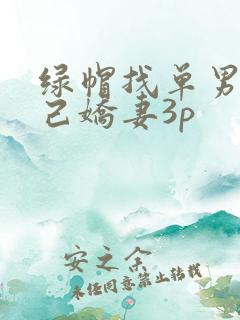 绿帽找单男
己嬌妻3p
安之余
未任同意禁止转载